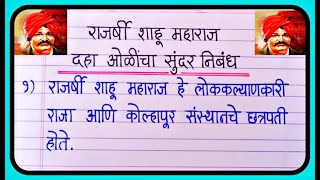 राजर्षी शाहू महाराज
दहा ओळींचा सुंदर निबंध
१) राजर्षी शाहू महाराज हे लोककल्याणकारी
राजा आणि कोल्हापूर संस्थानचे छत्रपती
होते.